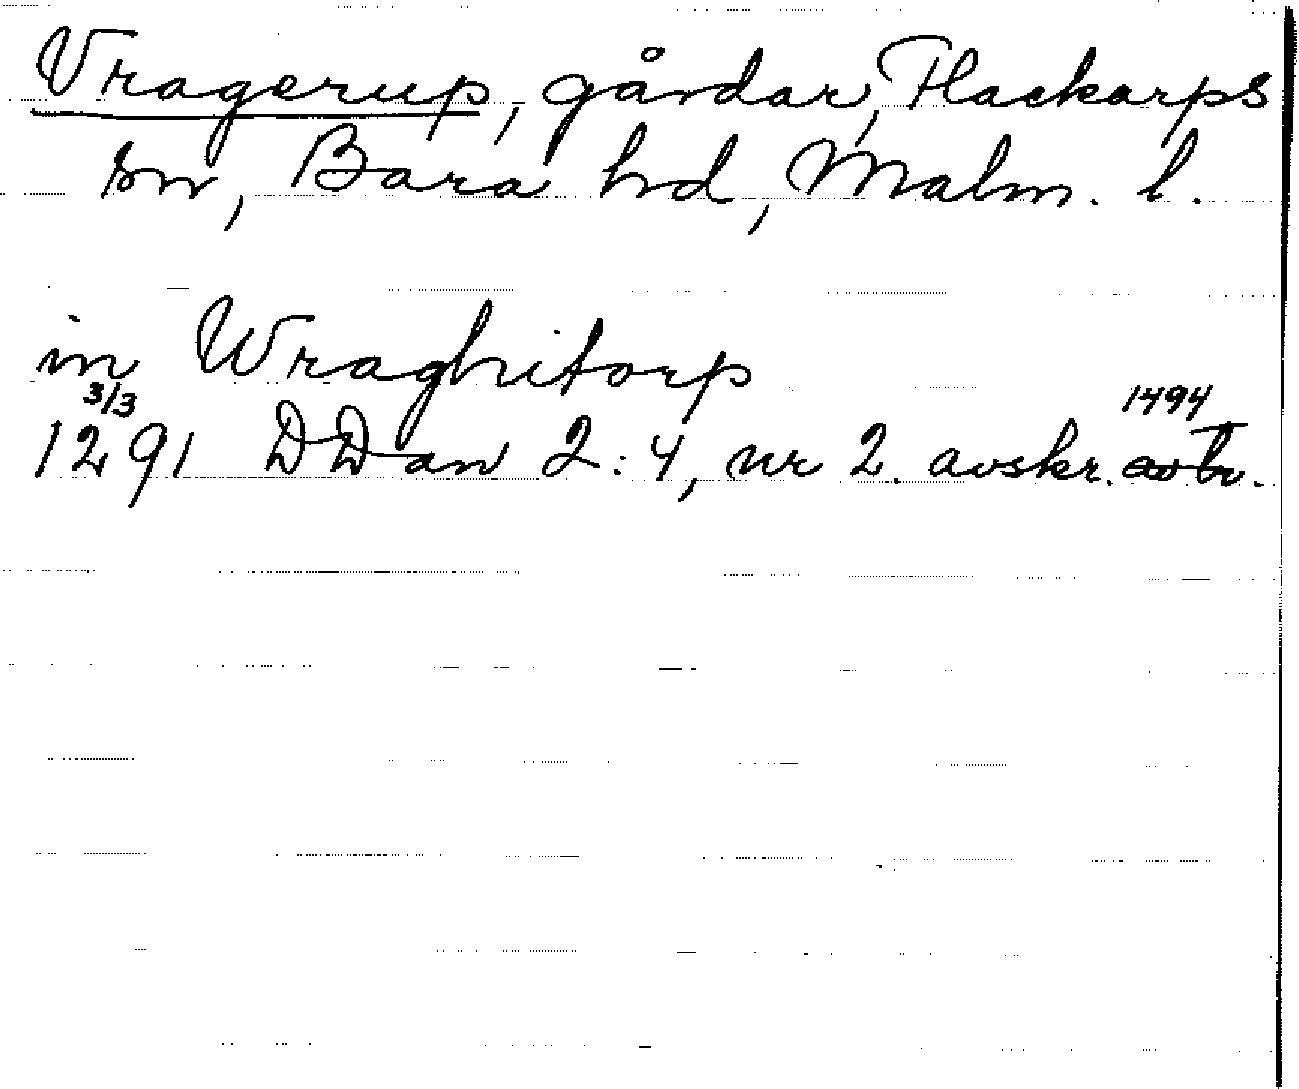 Vragerup, gårdar, Flackarps
sn, Bara hd, Malm. l.
in Wraghitorp
3/3 1494
1291 DDan 2:4, nr 2. avskr.